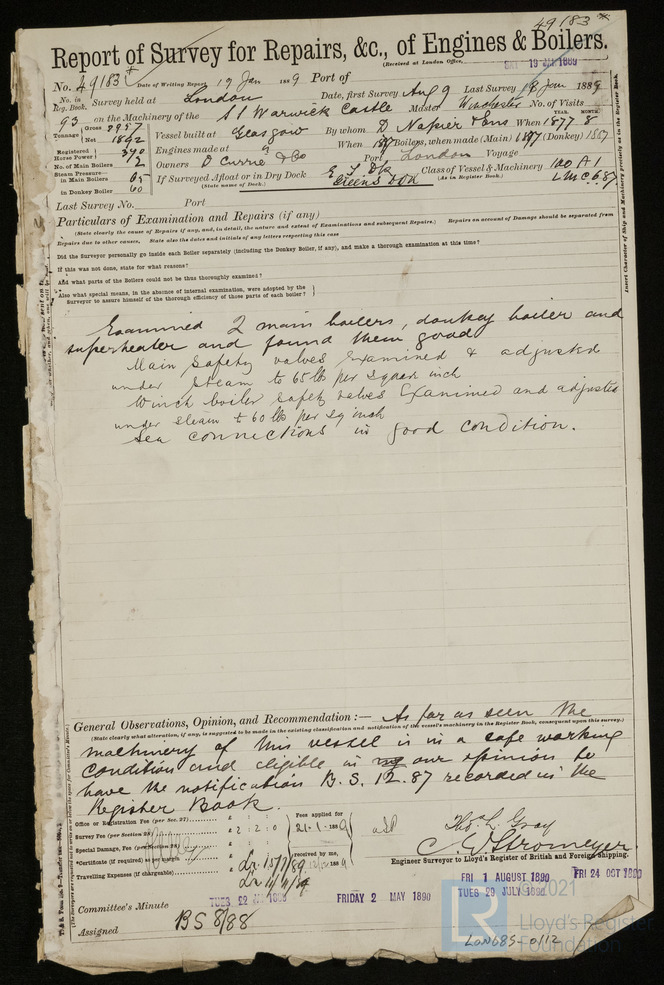 49183
Report of Survey for Repairs, &c., of Engines & Boilers.
(Received at London Office, SAT 19 JAN 1889
No. 49183 Date of Writing Report 19 Jan 1889 Port of
No. in Reg. Book. Survey held at London Date, first Survey Aug 9 Last Survey 18 Jan 1889
93 on the Machinery of the SS Warwick Castle Master Winchester No. of Visits
Tonnage Gross 2957 Net 1892 Vessel built at Glasgow By whom D Napier & Sons When 1877 YEAR. MONTH. 8
Registered Horse Power 340 Engines made at When 1877 Boilers, when made (Main) 1877 (Donkey)
No. of Main Boilers 12 Owners D Currie & Co Port London Voyage
Steam Pressure in Main Boilers 65 If Surveyed Afloat or in Dry Dock Class of Vessel & Machinery 100 A1
in Donkey Boiler 60 (State name of Dock.) Greens D Dk (As in Register Book.) LMC 6.87
Last Survey No. Port
Particulars of Examination and Repairs (if any)
(State clearly the cause of Repairs if any, and, in detail, the nature and extent of Examinations and subsequent Repairs.) Repairs on account of Damage should be separated from
Repairs due to other causes. State also the dates and initials of any letters respecting this case
Did the Surveyor personally go inside each Boiler separately (including the Donkey Boiler, if any), and make a thorough examination at this time?
If this was not done, state for what reasons?
And what parts of the Boilers could not be thus thoroughly examined?
Also what special means, in the absence of internal examination, were adopted by the
Surveyor to assure himself of the thorough efficiency of those parts of each boiler?
Insert Character of Ship and Machinery precisely as in the Register Book.
Examined 2 main boilers, donkey boiler and
superheater and found them good
Main Safety valves Examined & adjusted
under steam to 65 lb per square inch
Winch boiler safety valves Examined and adjusted
under steam to 60 lbs per sq inch
Sea connections in good condition.
General Observations, Opinion, and Recommendation :— As far as seen the
(State clearly what alteration, if any, is suggested to be made in the existing classification and notification of the vessel's machinery in the Register Book, consequent upon this survey.)
machinery of this vessel is in a safe working
condition and eligible in our opinion to
have the notification B.S. 12.87 recorded in the
Register Book.
Office or Registration Fee (per Sec. 27) £ : :
Survey Fee (per Section 28) £ 2 : 2 : 0
Special Damage, Fee (per Section 28) £ : :
Certificate (if required) as per margin £ : :
Travelling Expenses (if chargeable) £ : :
Fees applied for
21.1.1889
received by me,
Thos. L. Gray
C. E. Stromeyer
Engineer Surveyor to Lloyd's Register of British and Foreign Shipping.
FRI 1 AUGUST 1890 FRI 24 OCT 1890
Committee's Minute TUES 22 JAN 1889 FRIDAY 2 MAY 1890 TUES 29 JULY 1890
Assigned BS 8/88
© 2021
LR
Lloyd's Register
Foundation
LON685-0112